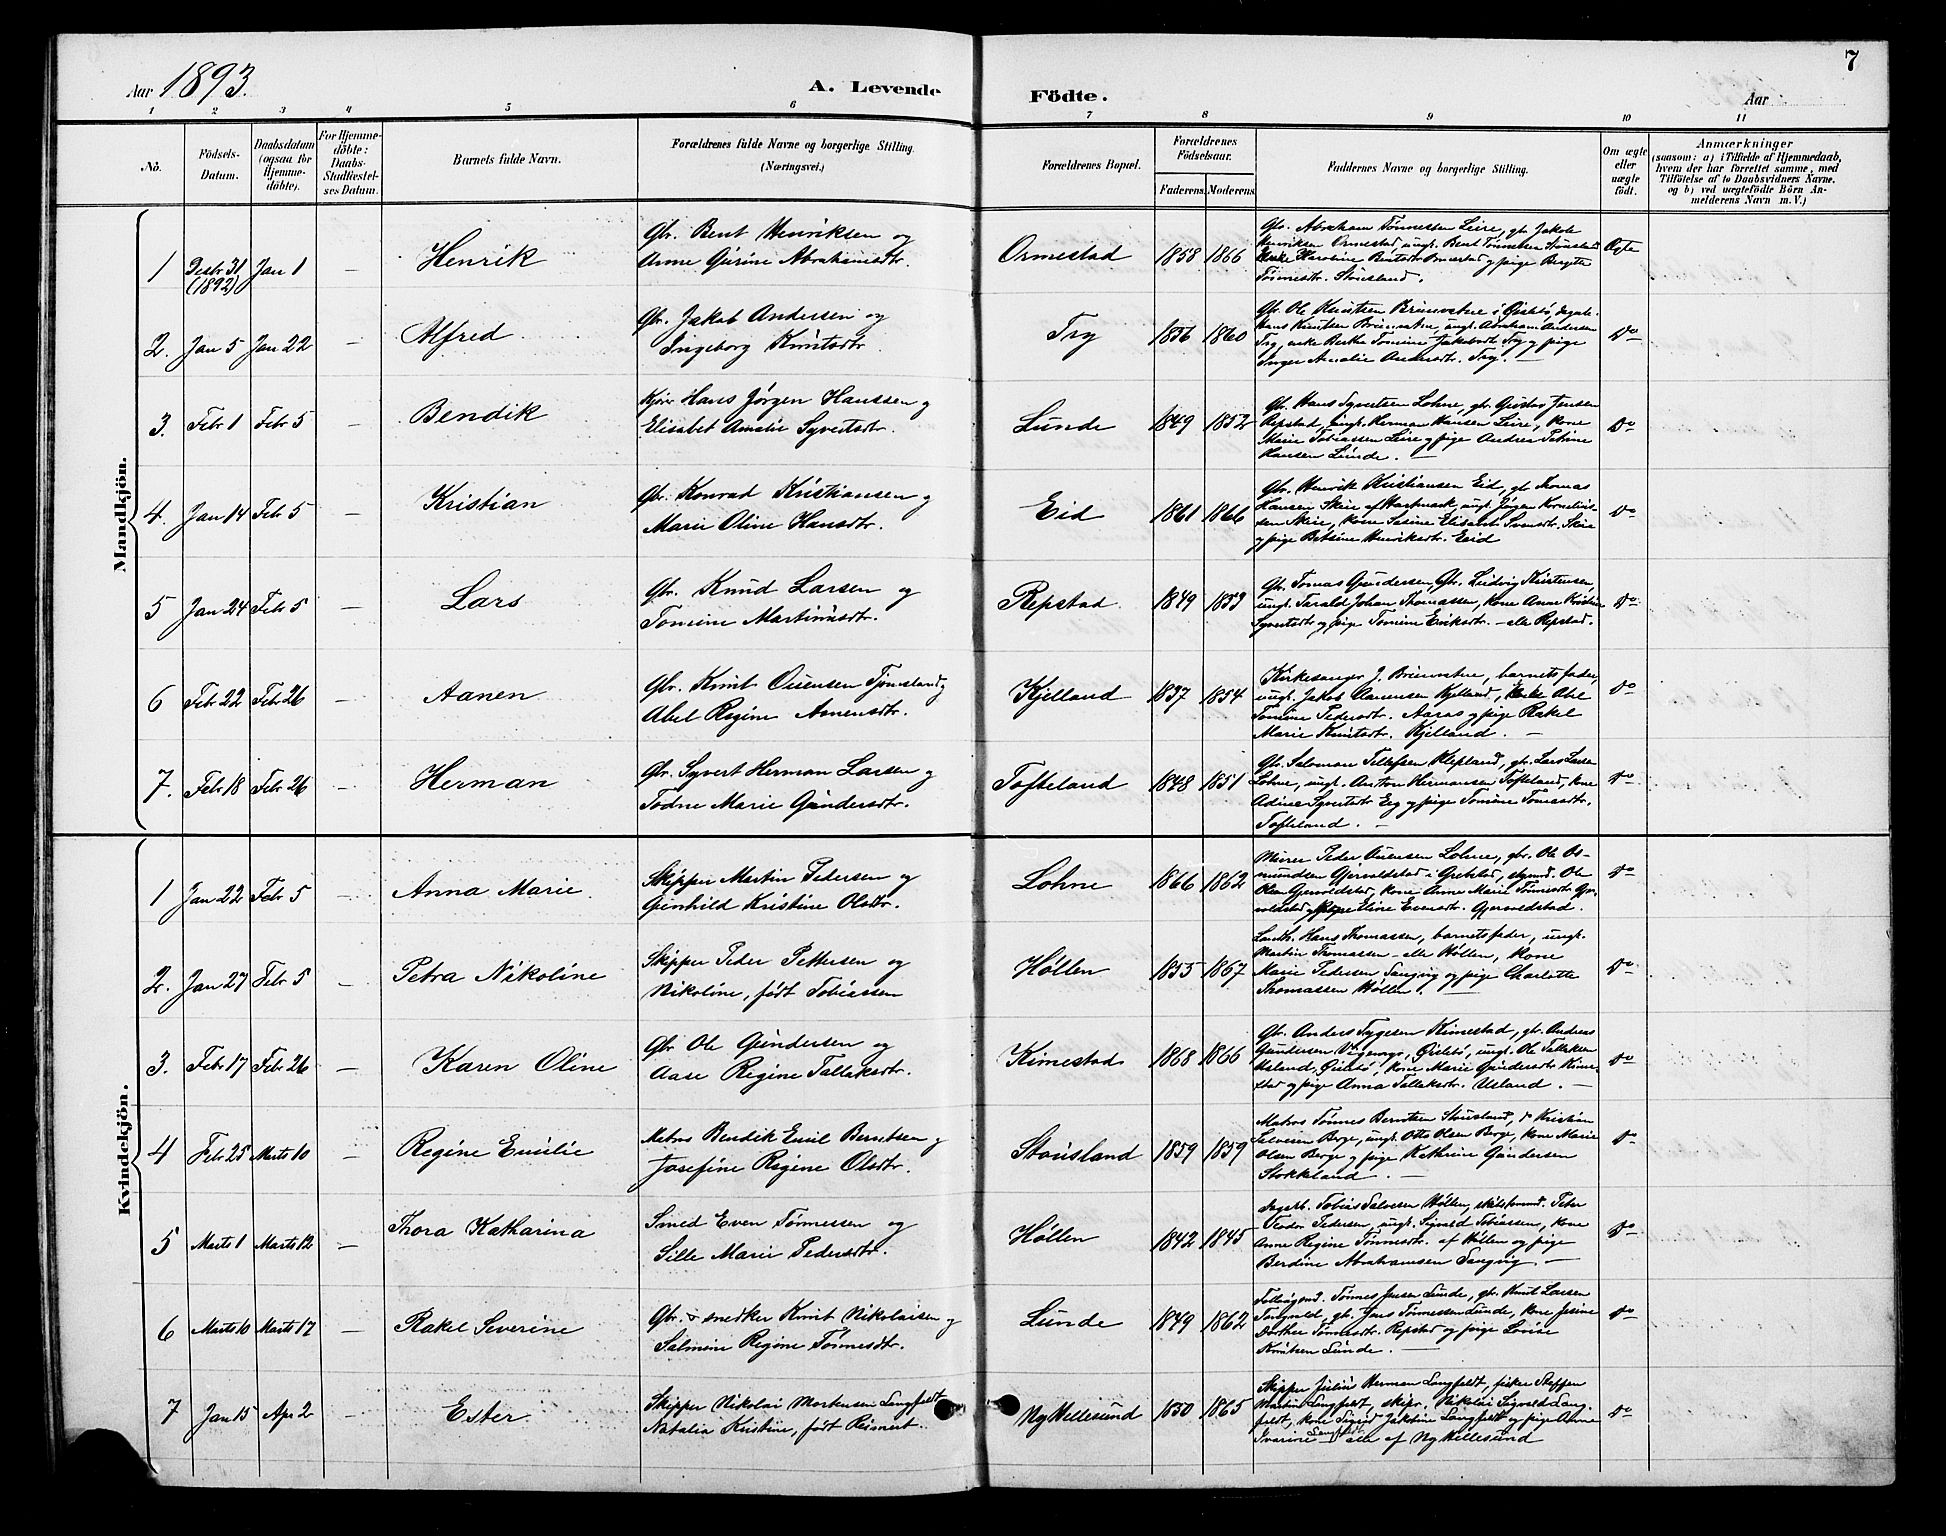 7
Aar 1893.
A. Levende Födte.
Aar
1 2 3 4 5 6 7 8 9 10 11
No.
Födsels-Datum.
Daabsdatum (ogsaa for Hjemme-döbte).
For Hjemme-döbte: Daabs-Stadfæstel-ses Datum.
Barnets fulde Navn.
Forældrenes fulde Navne og borgerlige Stilling. (Næringsvei.)
Forældrenes Bopæl.
Forældrenes Födselsaar.
Faderens. Moderens.
Faddernes Navne og borgerlige Stilling.
Om ægte eller uægte födt.
Anmærkninger
(saasom: a) i Tilfælde af Hjemmedaab,
hvem der har forrettet samme, med
Tilföielse af to Daabsvidners Navne.
og b) ved uægtefödte Börn An-
melderens Navn m. V.)
Mandkjön.
1 Desbr. 31 (1892) Jan 1 — Henrik
Gbr. Bent Henriksen og
Anne Gurine Abrahamsdtr.
Ormestad 1858 1866
Gbr. Abraham Tønnessen Leire, gbr Jakob
Henriksen Ormestad, ungk. Bent Tønnesen Stausland
Enke Karoline Bentsdtr Ormestad og pige Bergitte
Tønnesdtr. Stausland.
Ægte
2. Jan 5 Jan 22 — Alfred
Gbr. Jakob Andersen og
Ingeborg Knutsdtr.
Try 1856 1860
Gbr. Ole Knutsen Brunvatne i Øislebø,
Hans Knutsen Brunvatne, ungk. Abraham Andersen
Try, enke Berthe Tomine Jakobsdt Try og pige
Inger Amalie Andersdtr. Try. —
Do
3. Febr 1 Febr 5 — Bendik
Hans Jørgen Hanssen og
Elisabet Amalie Syvertsdtr.
Lunde 1849 1852
Gbr. Hans Syvertsen Lohne, gbr. Gustav Jensen
Repstad, ungk. Herman Hansen Leire, kone
Marie Tobiassen Leire og pige Andrea Petrine
Hansen Lunde. —
Do
4. Jan 14 Febr 5 — Kristian
Gbr. Konrad Kristiansen og
Marie Oline Hansdtr.
Eid 1861 1866
Gbr. Henrik Kristiansen Eid, gbr Tomas
Hansen Skeie af Hartmark, ungk. Jørgen Kornelius-
sen Skeie, kone Serine Elisabet Svensdtr. Skeie
og pige Betsine Henriksdtr. Eid
Do
5 Jan 24 Febr 5 — Lars
Gbr. Knud Larsen og
Tomine Martinusdtr.
Repstad 1849 1859
Gbr. Tomas Gundersen, Gbr. Ludvig Kristensen,
ungk. Tarald Johan Thomassen, kone Anne Kristine
Syvertsdtr og pige Tomine Eriksdtr. — alle Repstad.
Do
6 Febr 22 Febr 26 — Aanen
Gbr. Knut Ouensen Tjomsland og
Abel Regine Aanensdtr.
Kjelland 1837 1854
Kirkesanger J. Brunvatne, barnets fader,
ungk. Jakob Aanensen Kjelland, Enke Abel
Tomine Pedersdtr. Aaros og pige Rakel
Marie Knutsdtr. Kjelland. —
Do
7. Febr 18 Febr 26 — Herman
Gbr. Syvert Herman Larsen og
Todne Marie Gundersdtr.
Tofteland 1848 1851
Gbr. Salomon Tellefsen Klepland, gbr. Lars Larsen
Lohne, ungk. Anthon Hermansen Tofteland, kone
Adine Syvertsdtr Eeg og pige Tomine Tomasdtr.
Tofteland. —
Do
Kvindekjön.
1 Jan 22 Febr 5 — Anna Marie
Skipper Martin Pedersen og
Gunhild Kristine Olsdtr.
Lohne 1866 1862
Murer Peder Ouensen Lohne, gbr. Ole Os-
mundsen Gjervoldstad i Greipstad, skomd. Ole
Olsen Gjervoldstad, kone Anne Marie Tønnesdtr. Gjer-
voldstad og pige Eline Evensdtr. Gjervoldstad.
Do
2. Jan 27 Febr 5 — Petra Nikoline
Skipper Peder Pettersen og
Nikoline, født Tobiassen
Høllen 1855 1867
Landh. Hans Thomassen, barnets fader, ungk.
Martin Thomassen — alle Høllen, kone
Marie Pedersen Sangvig og pige Charlotte
Thomassen Høllen. —
Do
3. Febr 17 Febr 26 — Karen Oline
Gbr Ole Gundersen og
Aase Regine Tallaksdtr.
Kimestad 1868 1866
Gbr. Anders Tygesen Kimestad, gbr. Andreas
Gundersen, Øislebø, ungk. Ole Tallaksen
Usland, Øislebø, kone Marie Gundersdtr Kime-
stad og pige Anna Tallaksdtr. Usland. —
Do
4 Febr 25 Marts 10 — Regine Emilie
Matros Bendik Emil Berntsen og
Josefine Regine Olsdtr.
Stausland 1859 1859
Matros Tønnes Berntsen Stausland, do Kristian
Salvesen Berge, ungk. Otto Olsen Berge, kone Marie
Olsen Berge og pige Kathrine Gundersen
Stokkeland. —
Do
5 Marts 1 Marts 12 — Thora Katharina
Smed Even Tønnessen og
Sille Marie Pedersdtr.
Høllen 1842 1845
Tobias Salvesen Høllen, Peter
Teodor Pedersen, ungk. Sigvald Tobiassen, kone
Anne Regine Tønnesdtr. af Høllen og pige
Berdine Abrahamsen Sangvig. —
Do
6 Marts 10 Marts 17 — Rakel Severine
Gbr. & snedker Knut Nikolaisen og
Salmine Regine Tønnesdtr.
Lunde 1849 1862
Tønnes Jensen Lunde, gbr. Knut Larsen
gbr. Jens Tønnessen Lunde, kone Jesine
Dorthea Tønnesdtr. Repstad og pige Lovise
Knutsen Lunde. —
Do
7 Jan 15 Apr 2 — Ester
Skipper Nikolai Mortensen Langfeldt
Natalia Kristine, født Reinert.
Ny Hellesund 1850 1865
Skipper Julius Herman Langfeldt, fisker Steffen
Martin Langfeldt, skipr. Nikolai Sigvald Lang-
feldt, kone Sigrid Jakobine Langfeldt og pige Anne
Ivarine Langfeldt — alle af Ny Hellesund
Do